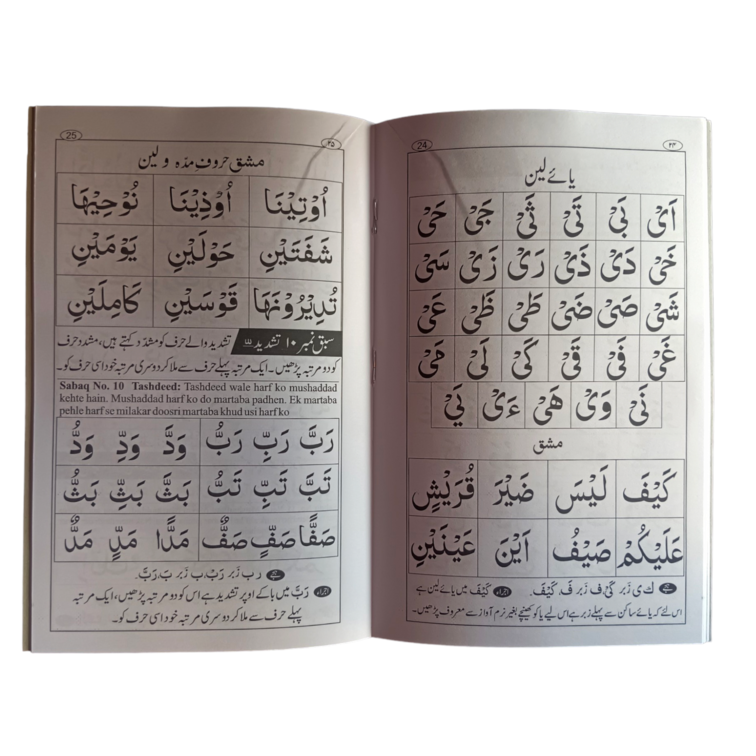 24 ۲۴
یائے لین
اَیْ بَیْ تَیْ ثَیْ جَیْ حَیْ
خَیْ دَیْ ذَیْ رَیْ زَیْ سَیْ
شَیْ صَیْ ضَیْ طَیْ ظَیْ عَیْ
غَیْ فَیْ قَیْ کَیْ لَیْ مَیْ
نَیْ وَیْ هَیْ ءَیْ یَیْ
مشق
كَيْفَ لَيْسَ ضَيْرَ قُرَيْشٍ
عَلَيْكُمْ صَيْفُ اَيْنَ عَيْنَيْنِ
ك ى زَبر كَىْ، ف زبر فَ، كَيْفَ. اجراء كَيْفَ میں یائے لین ہے
اس لئے کہ یائے ساکن سے پہلے زبر ہے اس لیے یا کو کھینچے بغیر نرم آواز سے معروف پڑھیں۔
25 ۲۵
مشق حروف مدّہ و لین
اُوْتِيْنَا اُوْذِيْنَا نُوْحِيْهَا
شَفَتَيْنِ حَوْلَيْنِ يَوْمَيْنِ
تُدِيْرُوْنَهَا قَوْسَيْنِ كَامِلَيْنِ
سبق نمبر ۱۰ تشدید ّ تشدید والے حرف کو مشدّد کہتے ہیں، مشدد حرف
کو دو مرتبہ پڑھیں۔ ایک مرتبہ پہلے حرف سے ملا کر دوسری مرتبہ خود اسی حرف کو۔
Sabaq No. 10 Tashdeed: Tashdeed wale harf ko mushaddad
kehte hain. Mushaddad harf ko do martaba padhen. Ek martaba
pehle harf se milakar doosri martaba khud usi harf ko
رَبَّ رَبِّ رَبُّ وَدَّ وَدِّ وَدُّ
تَبَّ تَبِّ تَبُّ بَثَّ بَثِّ بَثُّ
صَفًّا صَفٍّ صَفٌّ مَدًّا مَدٍّ مَدٌّ
ر ب زَبر رَبْ، ب زَبر بَ، رَبَّ.
اجراء رَبَّ میں با کے اوپر تشدید ہے اس کو دو مرتبہ پڑھیں، ایک مرتبہ
پہلے حرف سے ملا کر دوسری مرتبہ خود اسی حرف کو۔